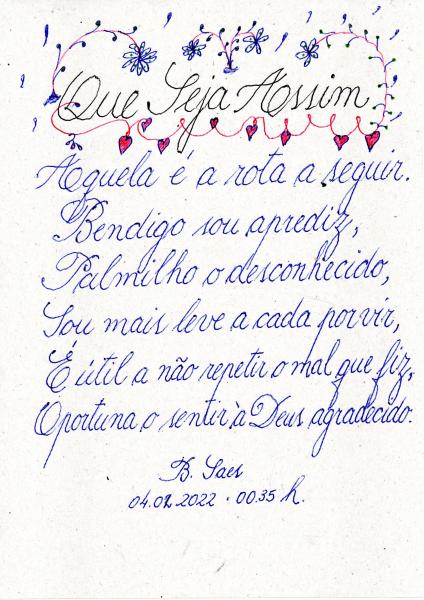 Que Seja Assim
Aquela é a rota a seguir.
Bendigo sou aprediz,
Palmilho o desconhecido,
Sou mais leve a cada porvir,
É útil a não repetir o mal que fiz,
Oportuna o sentir à Deus agradecido.
B. Saes
04.02.2022 · 00:35 h.